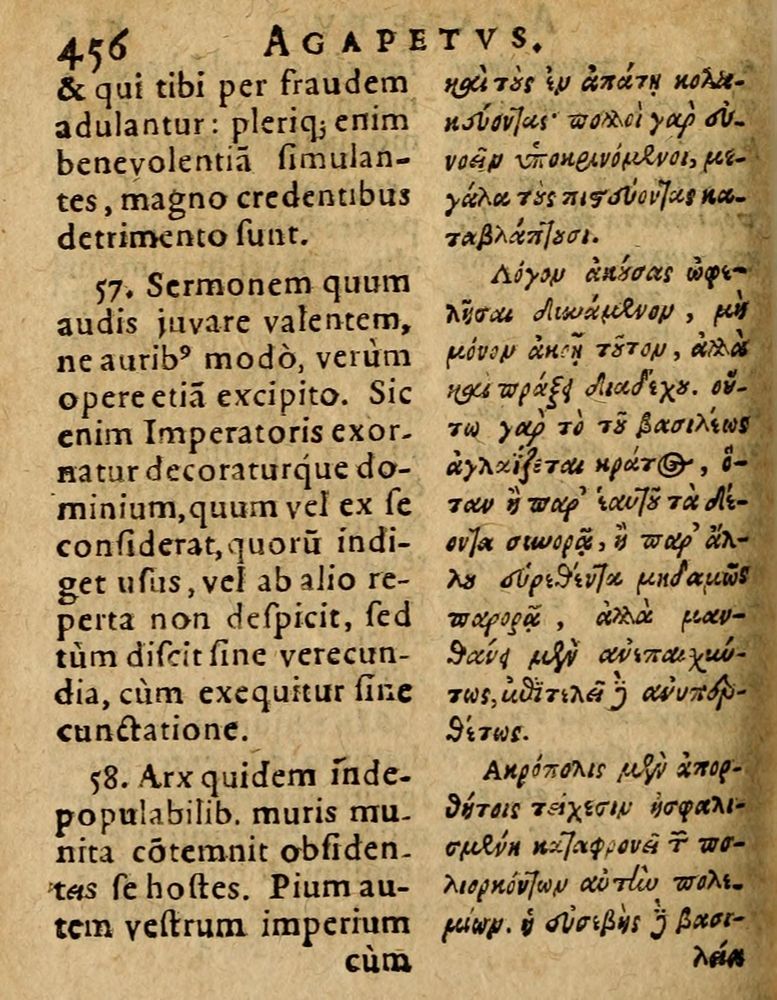 456 AGAPETVS.
& qui tibi per fraudem
adulantur: pleriq; enim
benevolentiā ſimulan-
tes, magno credentibus
detrimento ſunt.
57. Sermonem quum
audis juvare valentem,
ne auribꝰ modò, verùm
opere etiā excipito. Sic
enim Imperatoris exor-
natur decoraturq́ue do-
minium, quum vel ex ſe
conſiderat, quorū indi-
get uſus, vel ab alio re-
perta non deſpicit, ſed
tùm diſcit ſine verecun-
dia, cùm exequitur ſine
cunctatione.
58. Arx quidem inde-
populabilib. muris mu-
nita cōtemnit obſiden-
tes ſe hoſtes. Pium au-
tem veſtrum imperium
cùm
καὶ τοὺς ἐν ἀπάτῃ κολα-
κεύοντας· πολλοὶ γὰρ εὐ-
νοεῖν ὑποκρινόμενοι, με-
γάλα τοὺς πιστεύοντας κα-
ταβλάπτουσι.
Λόγον ἀκούσας ὠφε-
λῆσαι δυνάμενον, μὴ
μόνον ἀκοῇ τοῦτον, ἀλλὰ
καὶ πράξει διαδέχου. οὕ-
τω γὰρ τὸ τοῦ βασιλέως
ἀγλαΐζεται κράτος, ὅ-
ταν ἢ παρ’ ἑαυτοῦ τὰ δέ-
οντα συνορᾷ, ἢ παρ’ ἄλ-
λου εὑρεθέντα μηδαμῶς
παρορᾷ, ἀλλὰ μαν-
θάνει μὲν ἀνεπαισχύν-
τως, ἐπιτελεῖ δὲ ἀνυπερ-
θέτως.
Ακρόπολις μὲν ἀπορ-
θήτοις τείχεσιν ἠσφαλι-
σμένη καταφρονεῖ τῶν πο-
λιορκούντων αὐτὴν πολε-
μίων. ἡ εὐσεβὴς δὲ βασι-
λεία